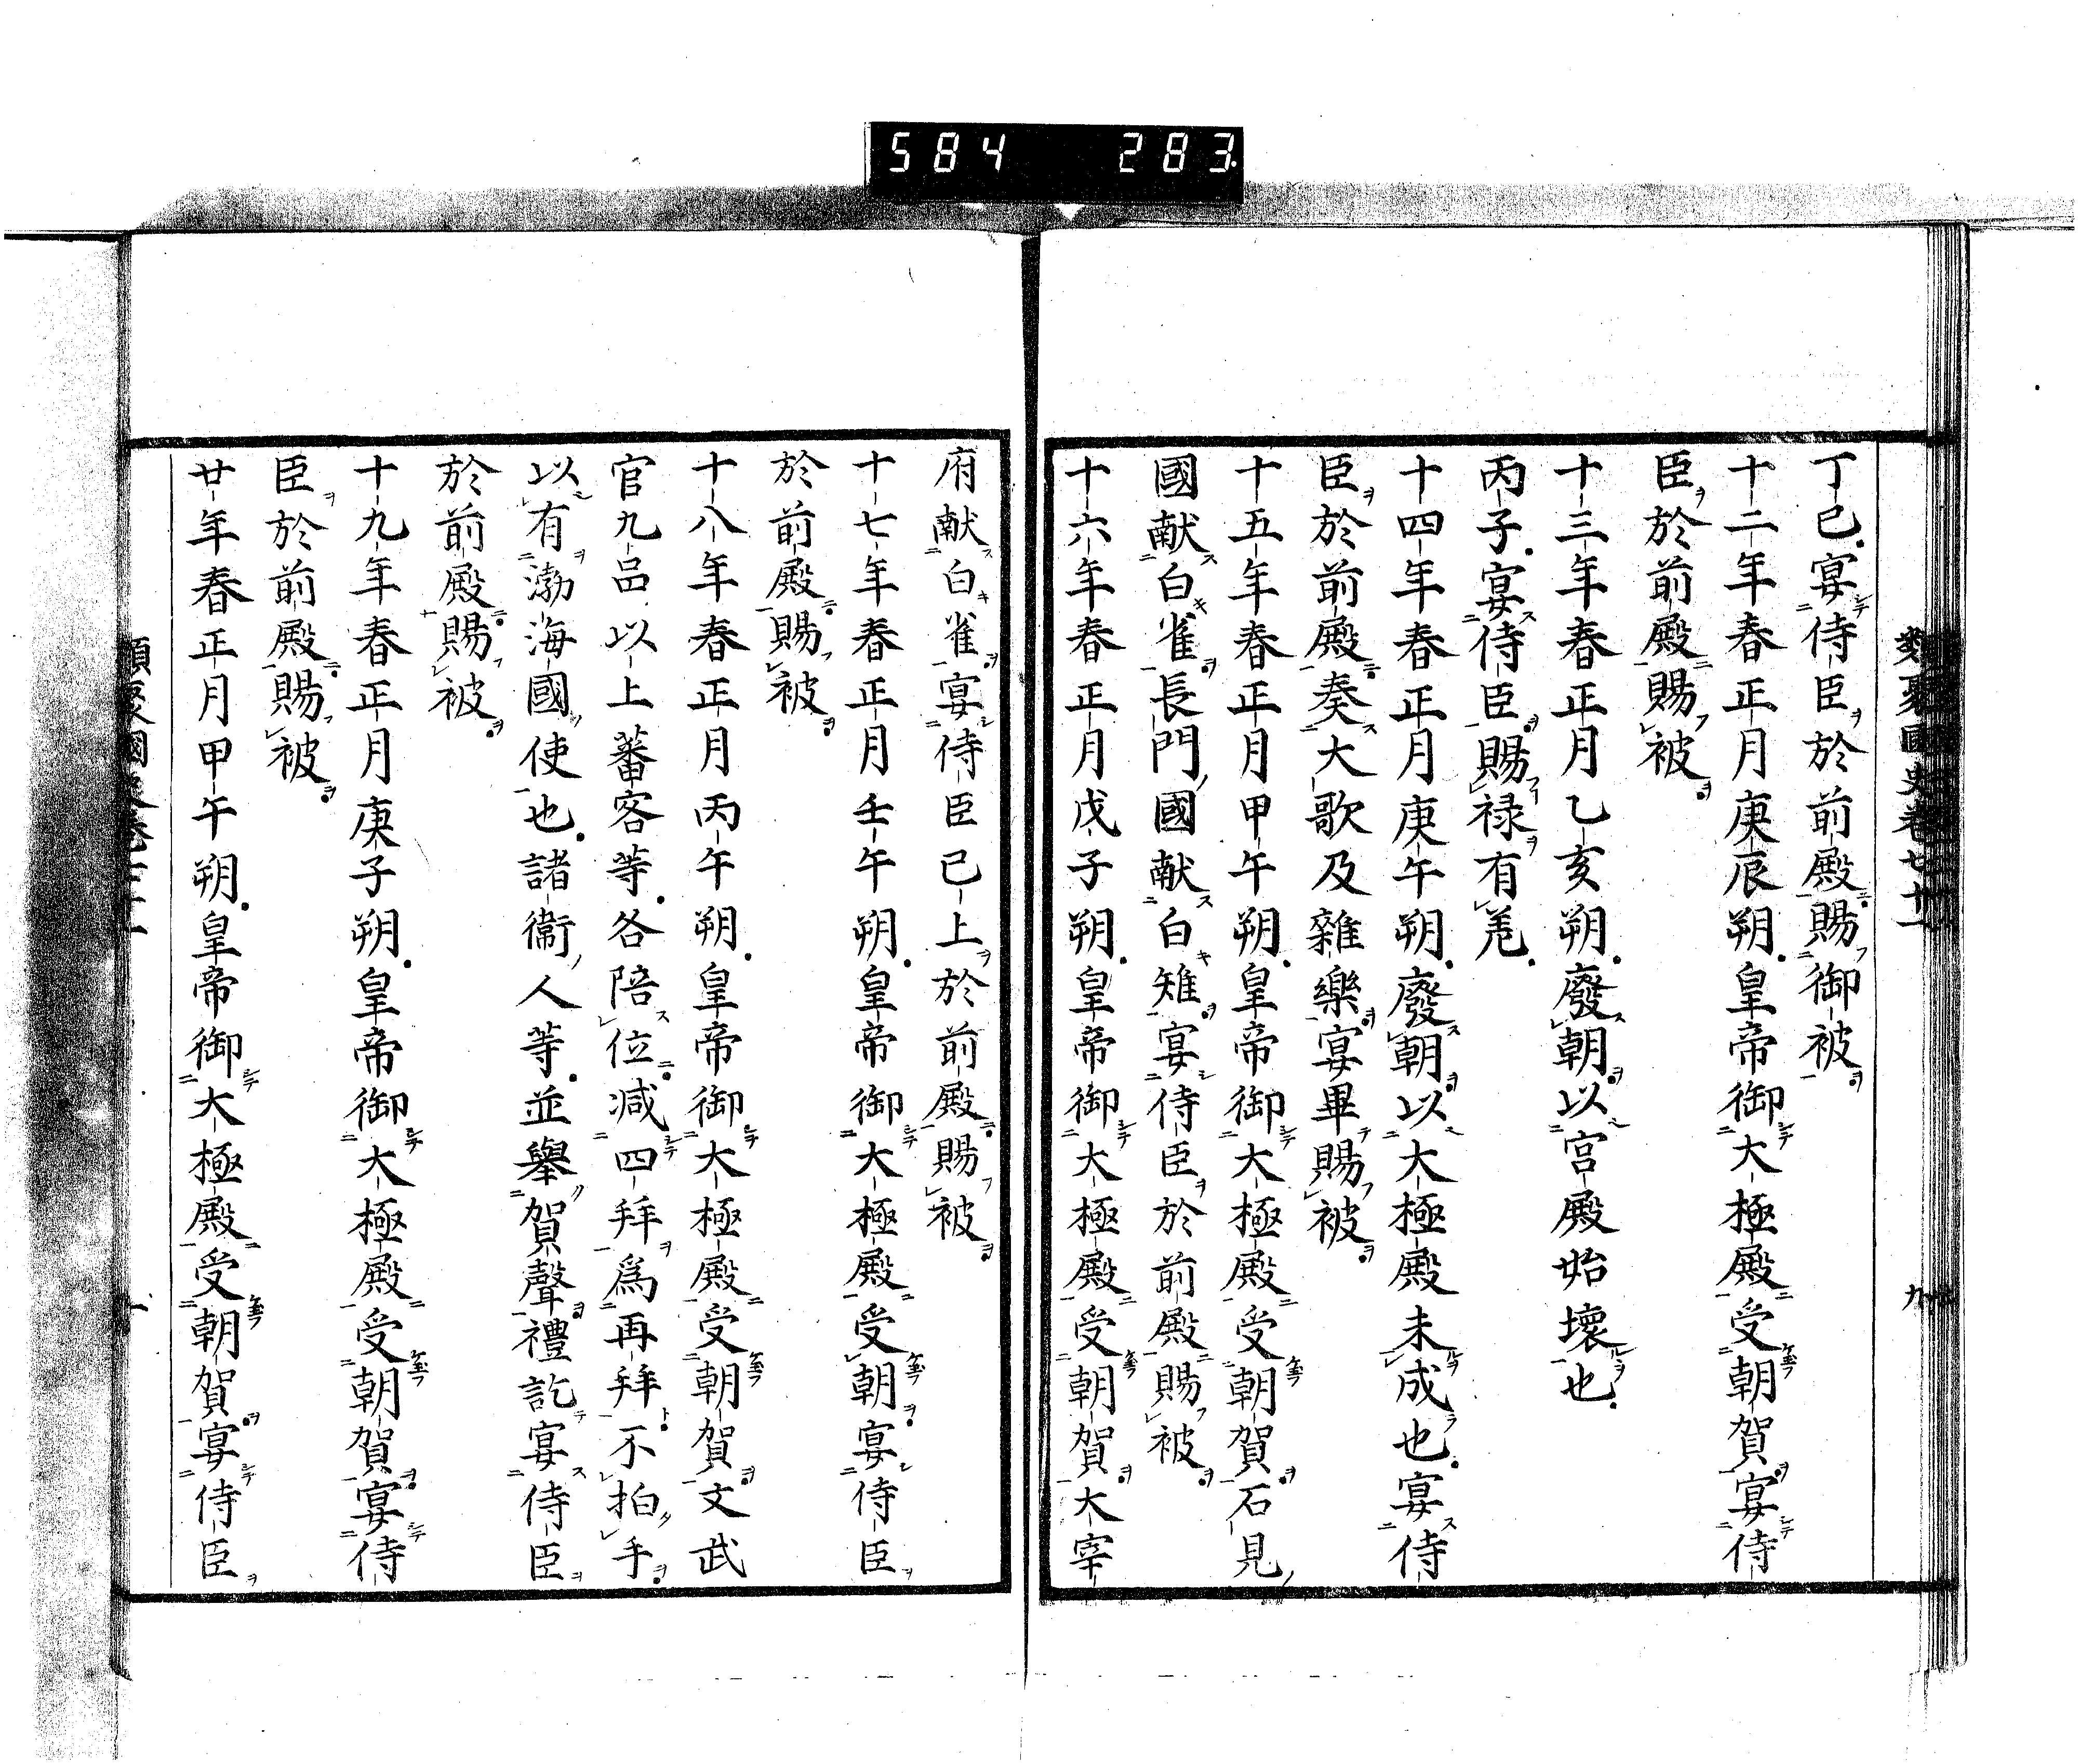 584 283
類聚國史卷七十一 九
丁巳宴侍臣於前殿賜御被
十二年春正月庚辰朔皇帝御大極殿受朝賀宴侍
臣於前殿賜被
十三年春正月乙亥朔廢朝以宮殿始壞也
丙子宴侍臣賜祿有差
十四年春正月庚午朔廢朝以大極殿未成也宴侍
臣於前殿奏大歌及雜樂宴畢賜被
十五年春正月甲午朔皇帝御大極殿受朝賀石見
國献白雀長門國献白雉宴侍臣於前殿賜被
十六年春正月戊子朔皇帝御大極殿受朝賀大宰
府献白雀宴侍臣已上於前殿賜被
十七年春正月壬午朔皇帝御大極殿受朝宴侍臣
於前殿賜被
十八年春正月丙午朔皇帝御大極殿受朝賀文武
官九品以上蕃客等各陪位减四拜爲再拜不拍手
以有渤海國使也諸衞人等並舉賀聲禮訖宴侍臣
於前殿賜被
十九年春正月庚子朔皇帝御大極殿受朝賀宴侍
臣於前殿賜被
廿年春正月甲午朔皇帝御大極殿受朝賀宴侍臣